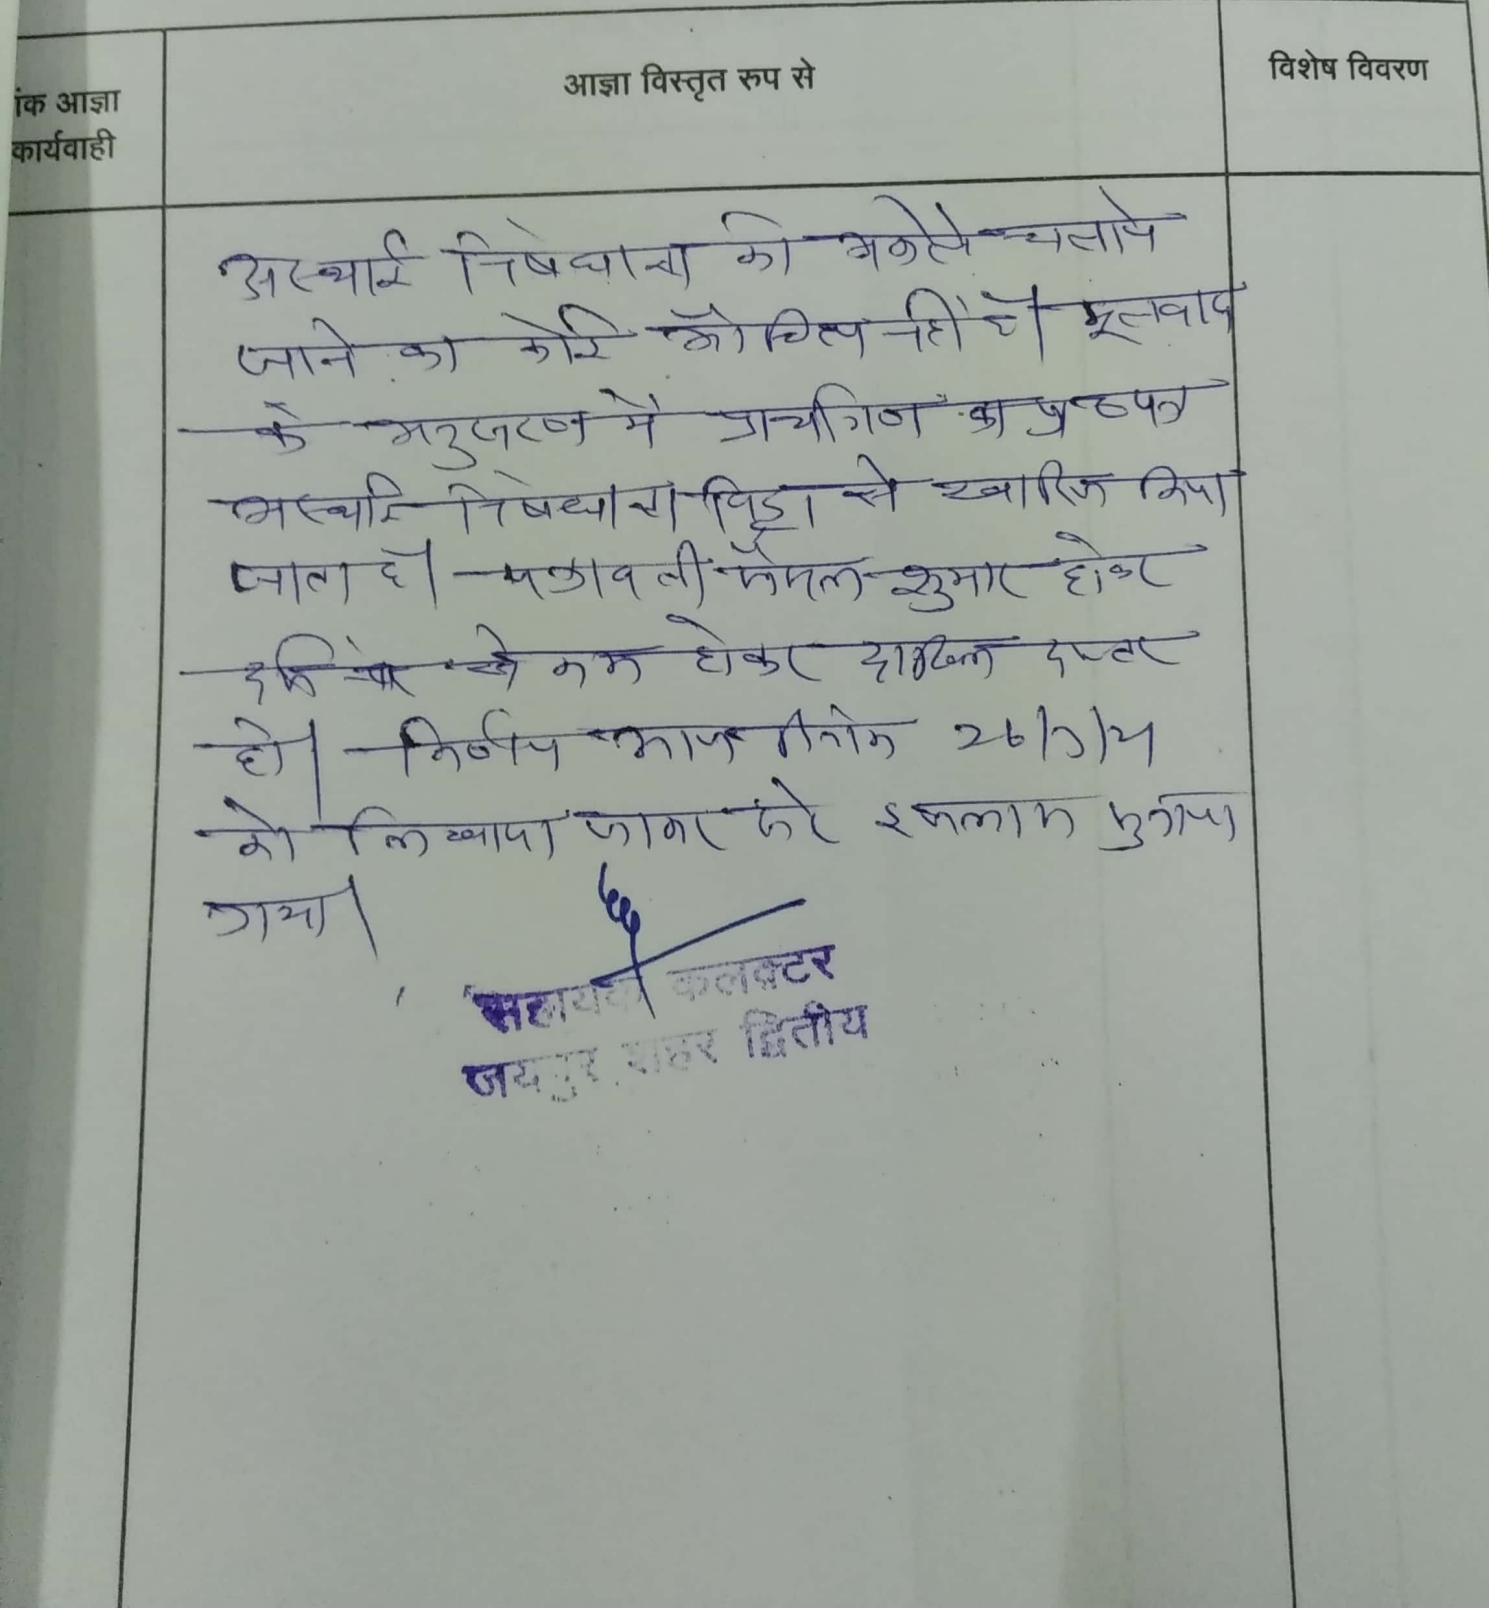 ांक आज्ञा
कार्यवाही
आज्ञा विस्तृत रुप से
विशेष विवरण
अस्थाई निषेधाज्ञा को अकेले चलाये
जाने का कोई औचित्य नहीं है। मूलवाद
के अनुसरण में प्रार्थीगण का प्रा०पत्र
अस्थाई निषेधाज्ञा विड्रा से खारिज किया
जाता है। पत्रावली फैसल शुमार होकर
से कम होकर दाखिल दफ्तर
हो। निर्णय आज दिनांक
को लिखाया जाकर सरे इजलास सुनाया
गया।
सहायक कलक्टर
जयपुर शहर द्वितीय